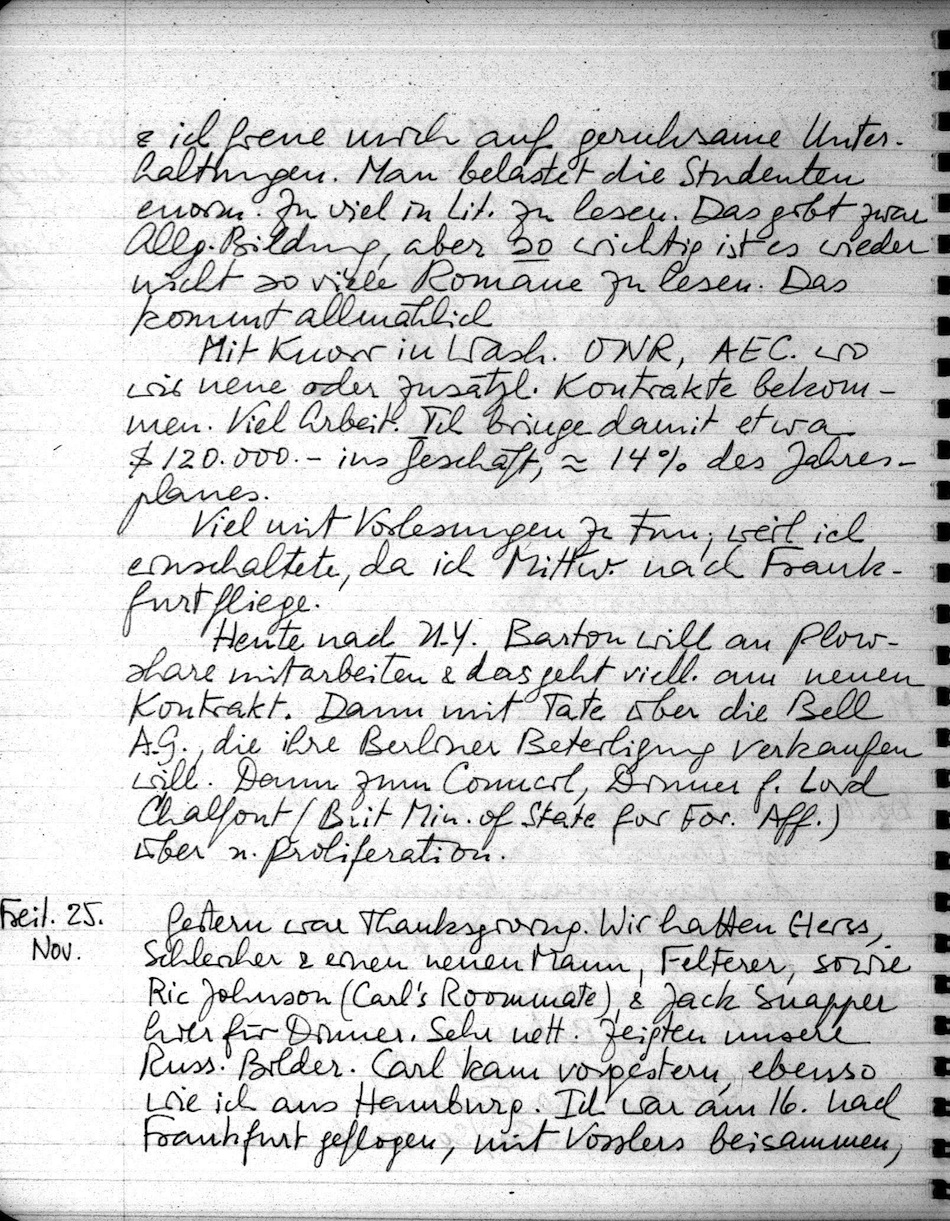 & ich freue mich auf geruhsame Unter-
haltungen. Man belastet die Studenten
enorm. Zu viel in Lit. zu lesen. Das gibt zwar
Allg. Bildung, aber so wichtig ist es wieder
nicht so viele Romane zu lesen. Das
kommt allmählich
Mit Knorr in Wash. ONR, AEC. wo
wir neue oder zusätzl. Kontrakte bekom-
men. Viel Arbeit. Ich bringe damit etwa
$ 120.000.- ins Geschäft, ≈ 14% des Jahres-
planes.
Viel mit Vorlesungen zu tun, weil ich
einschaltete, da ich Mittw. nach Frank-
furt fliege.
Heute nach N.Y. Barton will an Plow-
share mitarbeiten & das geht viell. am neuen
Kontrakt. Dann mit Tate über die Bell
A.G., die ihre Berliner Beteiligung verkaufen
will. Dann zum Council, Dinner f. Lord
Chalfont (Brit Min. of State for For. Aff.)
über n. proliferation.
Freit. 25.
Nov.
Gestern war Thanksgiving. Wir hatten
Schleicher & einen neuen Mann, Felterer, sowie
Ric Johnson (Carl's Roommate) & Jack Snapper
hier für Dinner. Sehr nett. Zeigten unsere
Russ. Bilder. Carl kam vorgestern, ebenso
wie ich aus Hamburg. Ich war am 16. nach
Frankfurt geflogen, mit Vosslers beisammen,